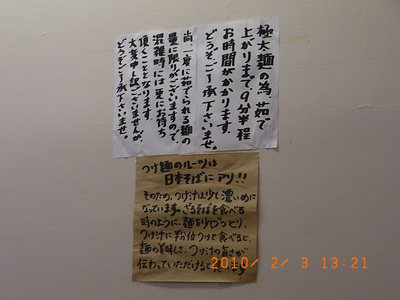 極太麺の為、茹で
上がりまで、9分半程
お時間がかかります。
どうぞご了承下さいませ。
尚一度に茹でられる麺の
量に限りがございますので、
混雑時には更にお待ち
頂くこととなります。
大変申し訳ございませんが、
どうぞご了承下さいませ。
つけ麺のルーツは
日本そばにアリ!!
そのため、つけ汁は少し濃いめに
なっています。ざるそばを食べる
時のように、麺を少しづつとり、
つけ汁に半分位つけて食べると、
麺の美味しさ、つけ汁の旨さが
伝わっていただけると
2010/ 2/ 3 13:21